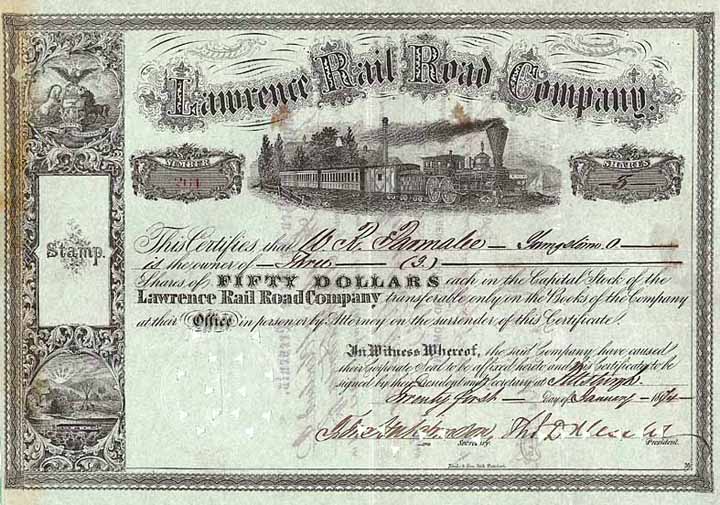 Lawrence Rail Road Company.
NUMBER
SHARES
3
Stamp.
This Certifies that W R Parmalee — Youngstown O —
is the owner of — Three — (3) —
Shares of FIFTY DOLLARS each in the Capital Stock of the
Lawrence Rail Road Company transferable only on the Books of the Company
at their Office in person or by Attorney on the surrender of this Certificate.
In Witness Whereof, the said Company have caused
their Corporate Seal to be affixed hereto and this Certificate to be
signed by their President and Secretary at Pittsburgh
Twenty first — Day of January — 1874
Secretary.
President.